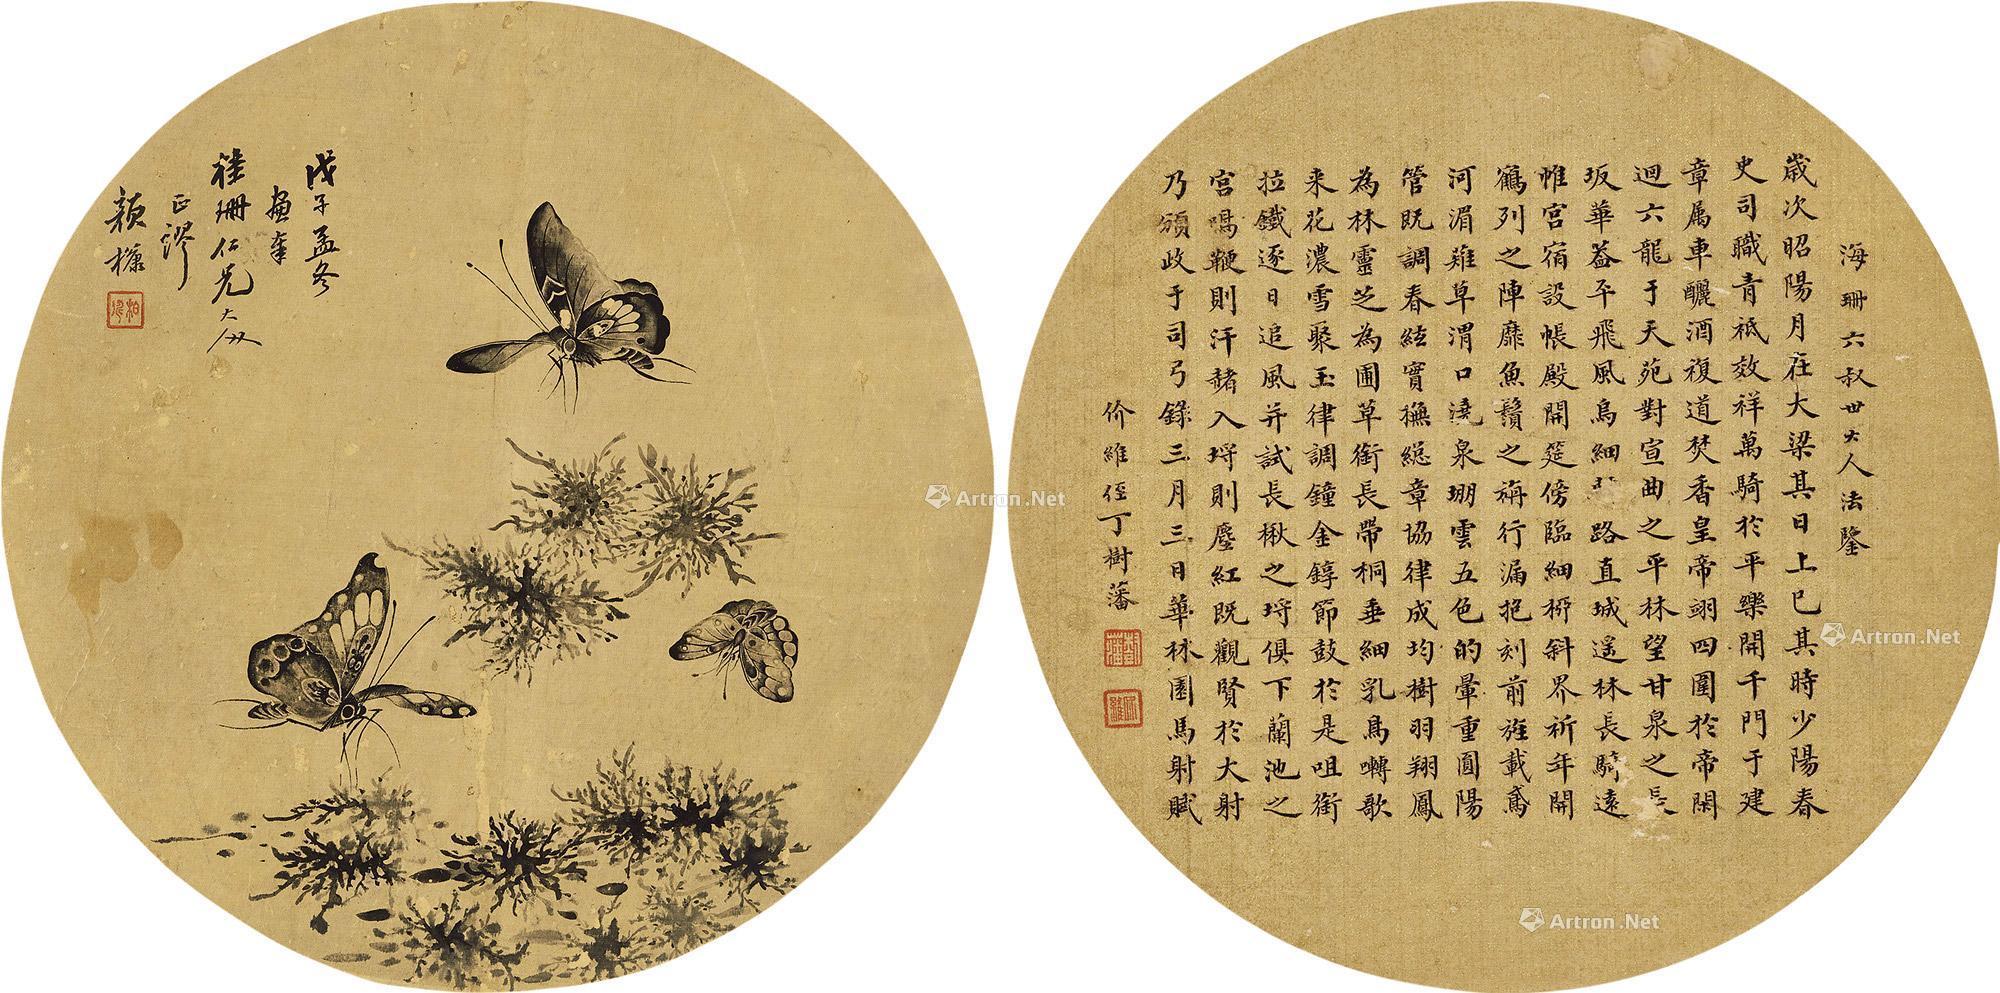 戊子孟冬
畫奉
珊仁兄大人
正謬
海珊六叔世大人法鑒
歲次昭陽月在大梁其日上巳其時少陽春
史司職青祇效祥萬騎於平樂開千門于建
章属車釃酒複道焚香皇帝翊四圍於帝閑
迴六龍于天苑對宣曲之平林望甘泉之長
坂華葢平飛風烏細路直城遥林長騎遠
帷宮宿設帳殿開筵傍臨細栁斜界祈年開
鶴列之陣靡魚鬚之旃行漏抱刻前旌載鳶
河湄薙草渭口澆泉堋雲五色的暈重圓陽
管既調春絃實撫緫章協律成均樹羽翔鳳
為林靈芝為圃草銜長帶桐垂細乳鳥囀歌
来花濃雪聚玉律調鐘金錞節鼓於是咀銜
拉鐵逐日追風并試長楸之埒俱下蘭池之
宮鳴鞭則汗赭入埒則塵紅既觀賢於大射
乃頒政于司弓錄三月三日華林園馬射賦
价維侄丁樹藩
樹藩
Artron.Net
Artron.Net
Artron.Net